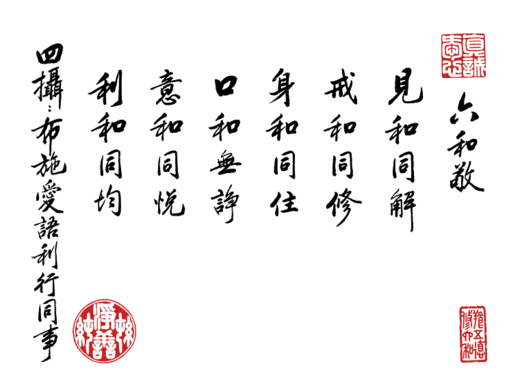 六和敬
見和同解
戒和同修
身和同住
口和無諍
意和同悅
利和同均
四攝：布施愛語利行同事
真誠